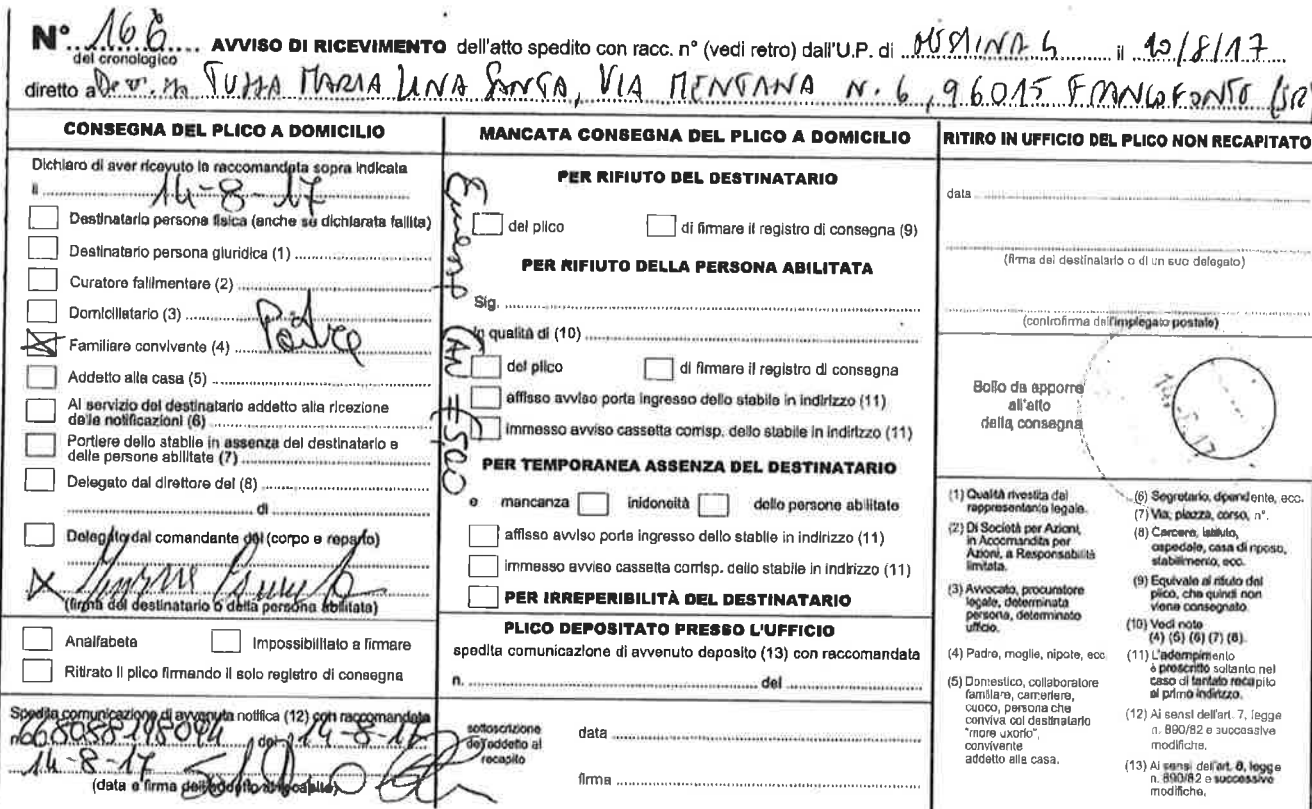 N° 166 AVVISO DI RICEVIMENTO dell'atto spedito con racc. n° (vedi retro) dall'U.P. di il 10/8/17
del cronologico
diretto a TUZZA MARIA LINA SANTA, VIA MENTANA N. 6, 96015 FRANCOFONTE (SR)
CONSEGNA DEL PLICO A DOMICILIO
Dichiaro di aver ricevuto la raccomandata sopra indicata
il 14-8-17
Destinatario persona fisica (anche se dichiarata fallita)
Destinatario persona giuridica (1)
Curatore fallimentare (2)
Domiciliatario (3)
Familiare convivente (4) Padre
Addetto alla casa (5)
Al servizio del destinatario addetto alla ricezione
delle notificazioni (6)
Portiere dello stabile in assenza del destinatario e
delle persone abilitate (7)
Delegato dal direttore del (8)
di
Delegato dal comandante del (corpo e reparto)
(firma del destinatario o della persona abilitata)
Analfabeta Impossibilitato a firmare
Ritirato il plico firmando il solo registro di consegna
Spedita comunicazione di avvenuta notifica (12) con raccomandata
n° 668088198094 del 14-8-17
14-8-17
(data e firma dell'addetto al recapito)
MANCATA CONSEGNA DEL PLICO A DOMICILIO
PER RIFIUTO DEL DESTINATARIO
del plico di firmare il registro di consegna (9)
PER RIFIUTO DELLA PERSONA ABILITATA
Sig.
In qualità di (10)
del plico di firmare il registro di consegna
affisso avviso porta ingresso dello stabile in indirizzo (11)
immesso avviso cassetta corrisp. dello stabile in indirizzo (11)
PER TEMPORANEA ASSENZA DEL DESTINATARIO
e mancanza inidoneità delle persone abilitate
affisso avviso porta ingresso dello stabile in indirizzo (11)
immesso avviso cassetta corrisp. dello stabile in indirizzo (11)
PER IRREPERIBILITÀ DEL DESTINATARIO
PLICO DEPOSITATO PRESSO L'UFFICIO
spedita comunicazione di avvenuto deposito (13) con raccomandata
n. del
sottoscrizione
dell'addetto al
recapito
data
firma
Emesso CAN
RITIRO IN UFFICIO DEL PLICO NON RECAPITATO
data
(firma del destinatario o di un suo delegato)
(controfirma dell'impiegato postale)
Bollo da apporre
all'atto
della consegna
(1) Qualità rivestita dal
rappresentante legale.
(2) Di Società per Azioni,
in Accomandita per
Azioni, a Responsabilità
limitata.
(3) Avvocato, procuratore
legale, determinata
persona, determinato
ufficio.
(4) Padre, moglie, nipote, ecc.
(5) Domestico, collaboratore
familiare, cameriere,
cuoco, persona che
conviva col destinatario
"more uxorio",
convivente
addetto alla casa.
(6) Segretario, dipendente, ecc.
(7) Via, piazza, corso, n°.
(8) Carcere, istituto,
ospedale, casa di riposo,
stabilimento, ecc.
(9) Equivale al rifiuto del
plico, che quindi non
viene consegnato.
(10) Vedi note
(4) (5) (6) (7) (8).
(11) L'adempimento
è prescritto soltanto nel
caso di tentato recapito
al primo indirizzo.
(12) Ai sensi dell'art. 7, legge
n. 890/82 e successive
modifiche.
(13) Ai sensi dell'art. 8, legge
n. 890/82 e successive
modifiche.